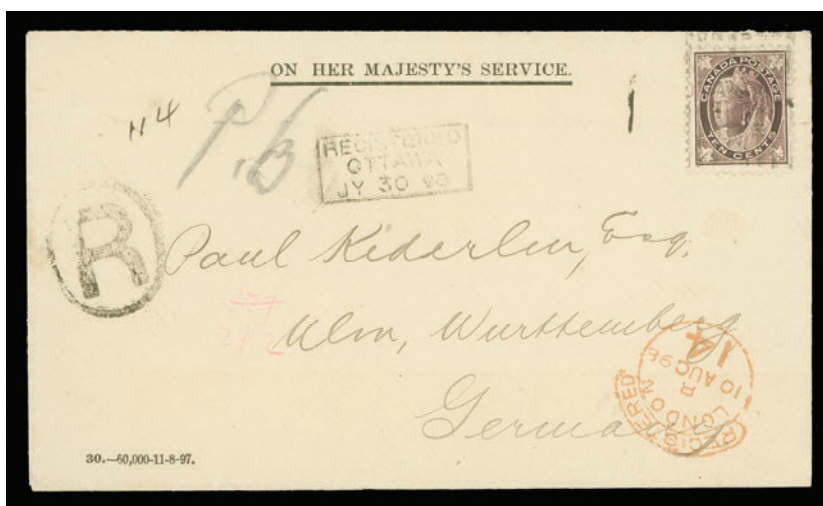 ON HER MAJESTY'S SERVICE.
CANADA POSTAGE
TEN CENTS
114
P.b
1
REGISTERED
OTTAWA
JY 30 98
R
Paul Kederlen, Esq.
277
292
Ulm, Wurttemberg
Germany
REGISTERED
LONDON
R
10 AUG 98
14
30.—60,000-11-8-97.